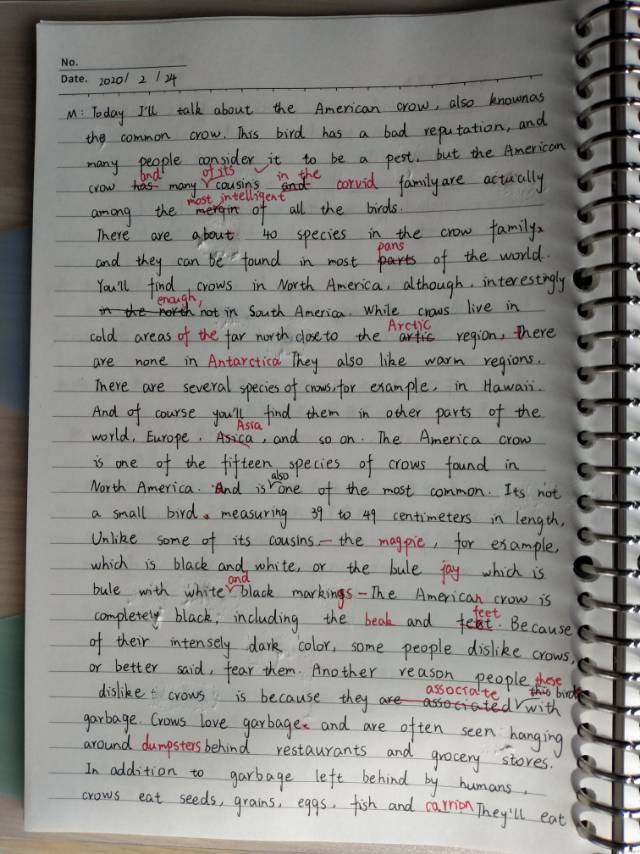 No.
Date. 2020 / 2 / 24
M: Today I'll talk about the American crow, also knownas
the common crow. This bird has a bad reputation, and
many people consider it to be a pest, but the American
and of its in the
crow has many cousin's and corvid family are actually
most intelligent
among the mergin of all the birds.
There are about 40 species in the crow family,
pans
and they can be found in most parts of the world.
You'll find crows in North America, although, interestingly
enough,
in the north not in South America. While crows live in
Arctic
cold areas of the far north close to the artic region, There
are none in Antarctica They also like warm regions.
There are several species of crows, for example, in Hawaii.
And of course you'll find them in other parts of the
Asia
world, Europe, Asica, and so on. The America crow
is one of the fifteen species of crows found in
also
North America. And is one of the most common. Its not
a small bird. measuring 39 to 49 centimeters in length,
Unlike some of its cousins - the magpie, for example,
which is black and white, or the bule jay which is
and
bule with white black markings - The American crow is
feet
completely black, including the beak and feet. Because
of their intensely dark color, some people dislike crows,
or better said, fear them. Another reason people these
associate
dislike crows is because they are associated this bird with
garbage. Crows love garbage. and are often seen hanging
around dumpsters behind restaurants and grocery stores.
In addition to garbage left behind by humans,
crows eat seeds, grains, eggs, fish and carrion They'll eat